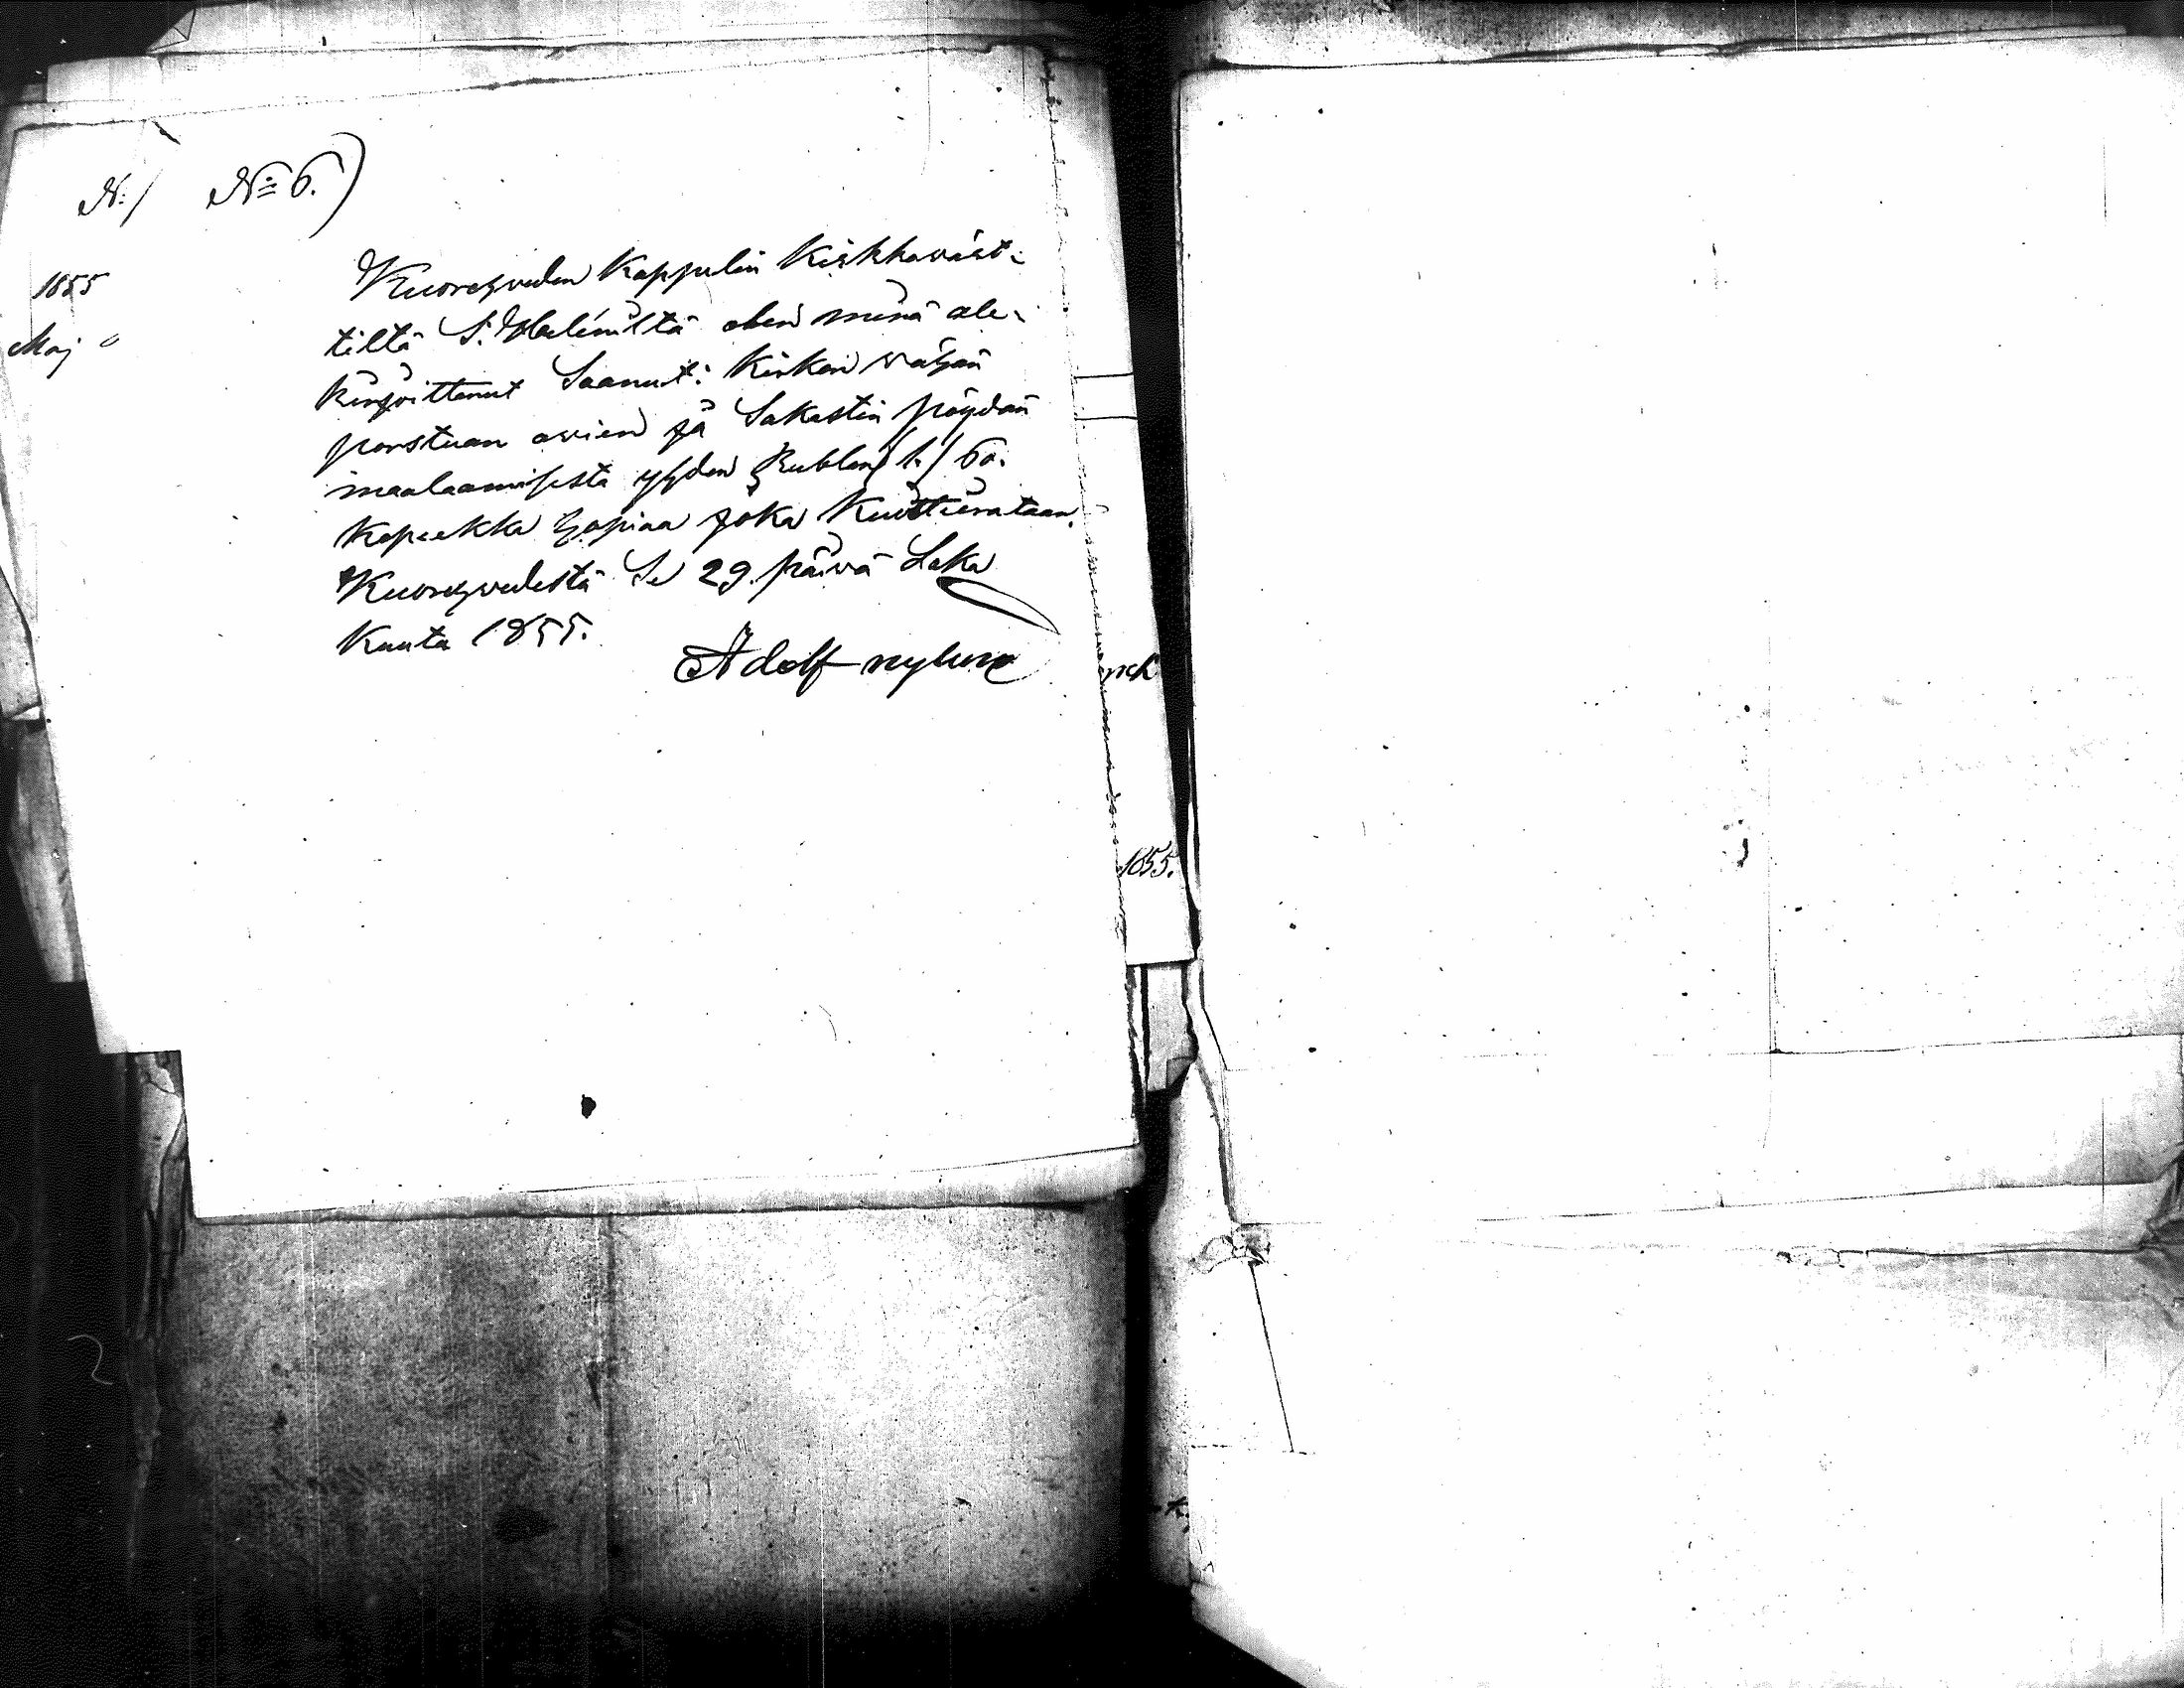 N:/ No 6.)
1855
Maj
Kuoreyveden Kappelin Kirkkowäst:
tiltä S. Heliniltä olen minä ale:
kirjoittanut Saanut: Kirkon
porstuan owien ja Sakastin pöydän
maalaamisesta yhden Rublan /1./ 60.
Kopeekka hopiaa joka Kuittierataan.
Kuoreyvedestä Se 29. päivä Loka
Kuuta 1855.
Adolf nylund
1855.